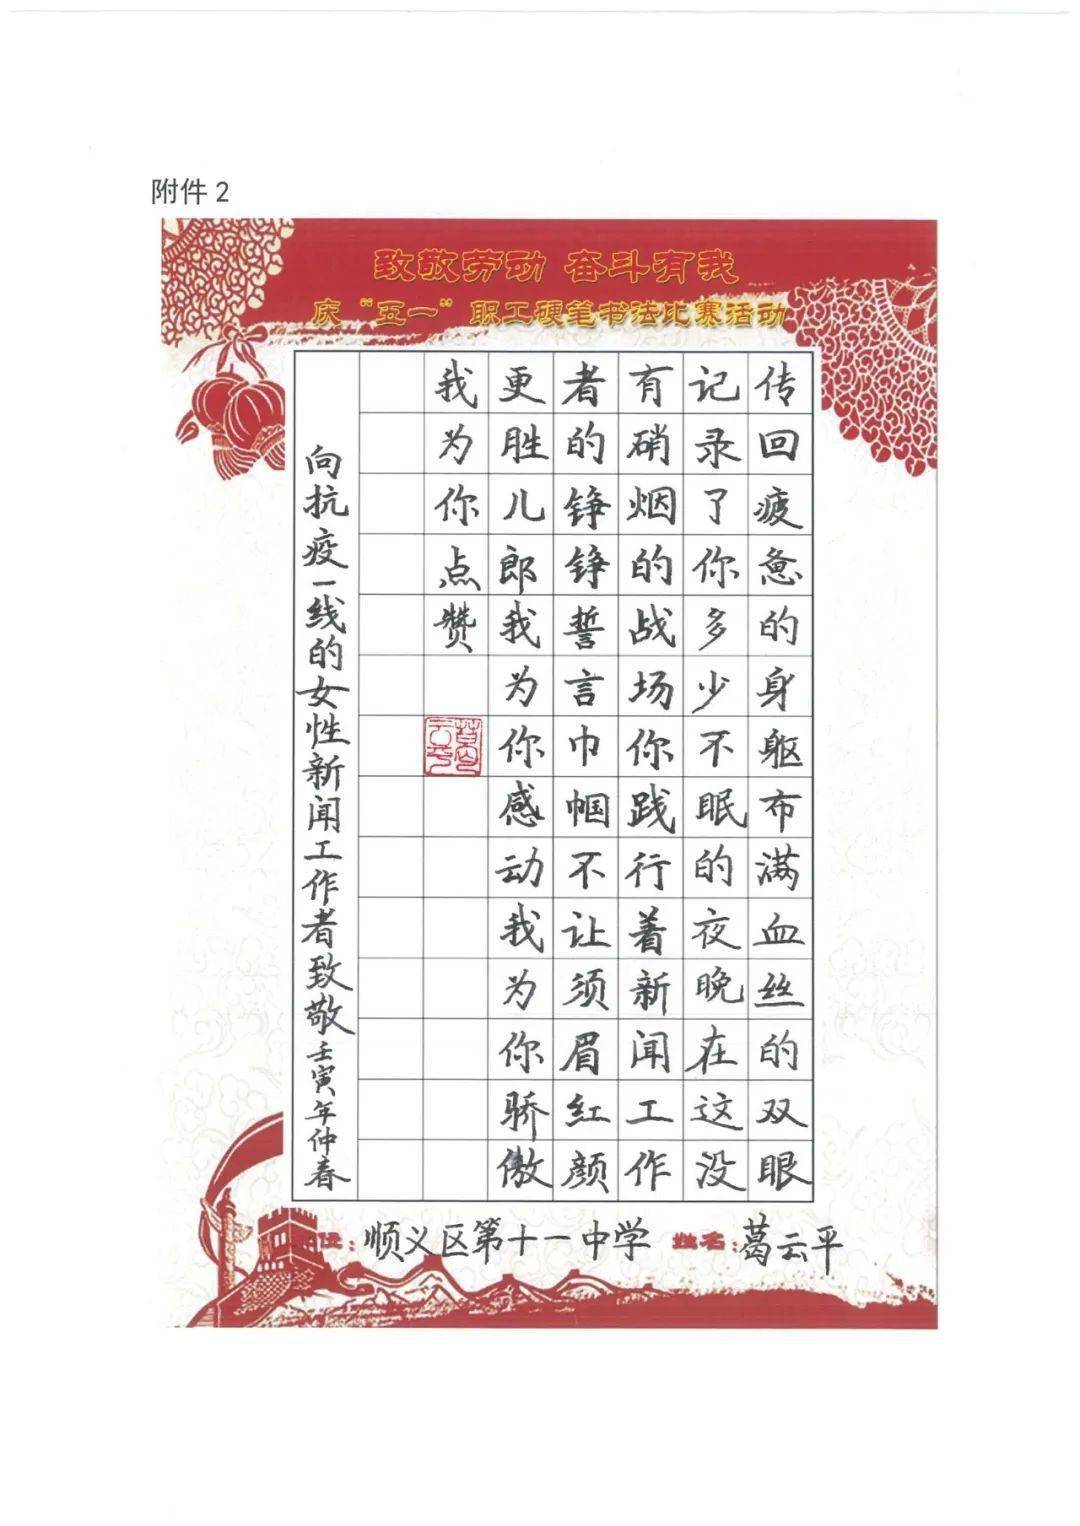 附件2
致敬劳动 奋斗有我
庆“五一”职工硬笔书法比赛活动
传回疲惫的身躯布满血丝的双眼
记录了你多少不眠的夜晚在这没
有硝烟的战场你践行着新闻工作
者的铮铮誓言巾帼不让须眉红颜
更胜儿郎我为你感动我为你骄傲
我为你点赞
向抗疫一线的女性新闻工作者致敬壬寅年仲春
位：顺义区第十一中学 姓名：葛云平